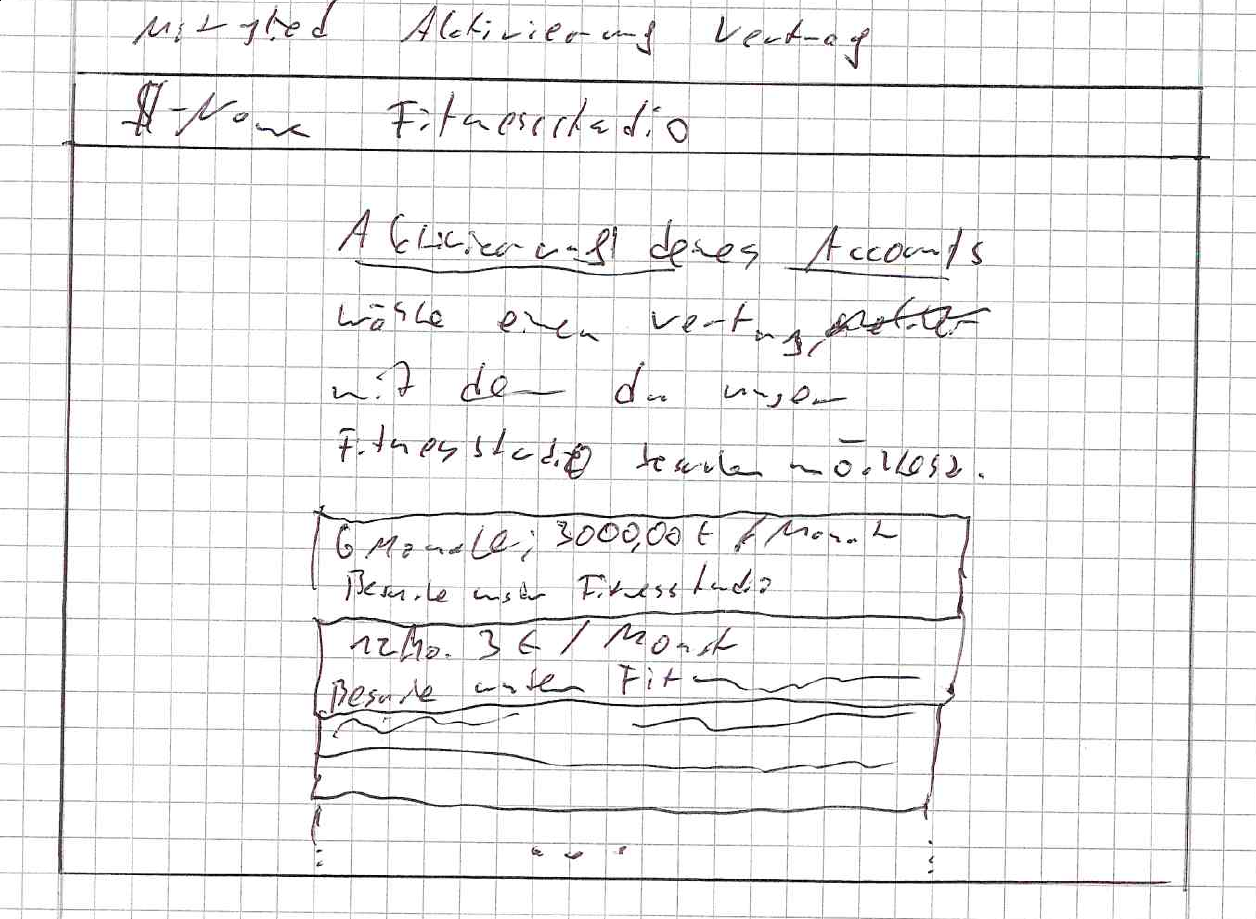 Mitglied Aktivierung Vertrag
$-Name Fitnessstudio
Aktivierung deines Accounts
Wähle einen Vertrag,
mit dem du unser
Fitnessstudio besuchen möchtest.
6 Monate; 3000,00 € / Monat
Besuche unser Fitnessstudio
12 Mo. 3 € / Monat
Besuche unser Fit
...